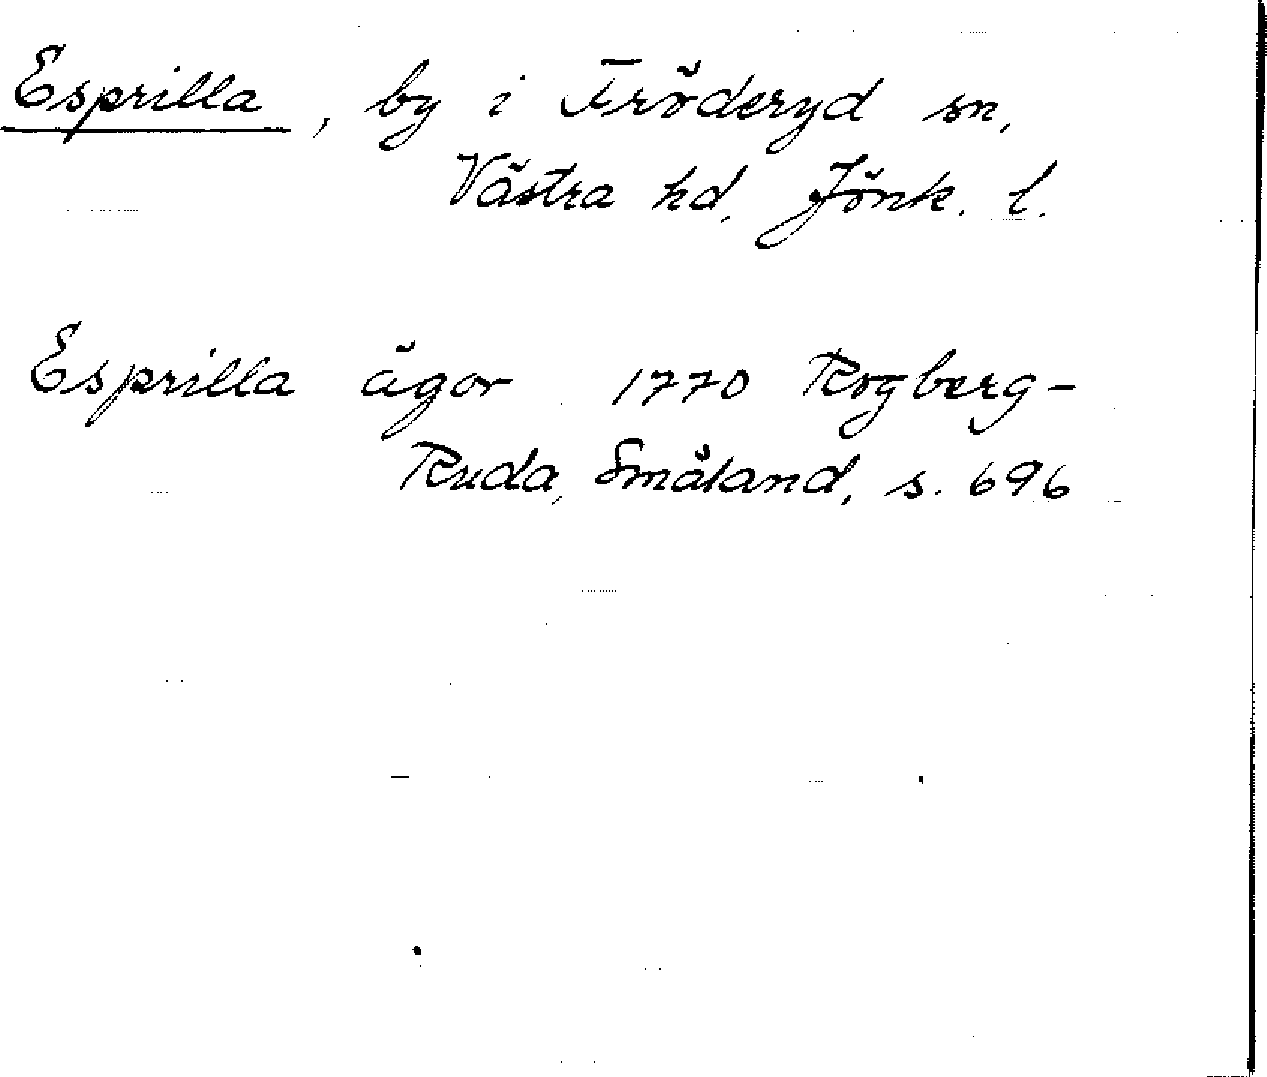 Esprilla, by i Fröderyd sn,
Västra hd, Jönk. l.
Esprilla ägor 1770 Rogberg-
Ruda, Småland, s. 696